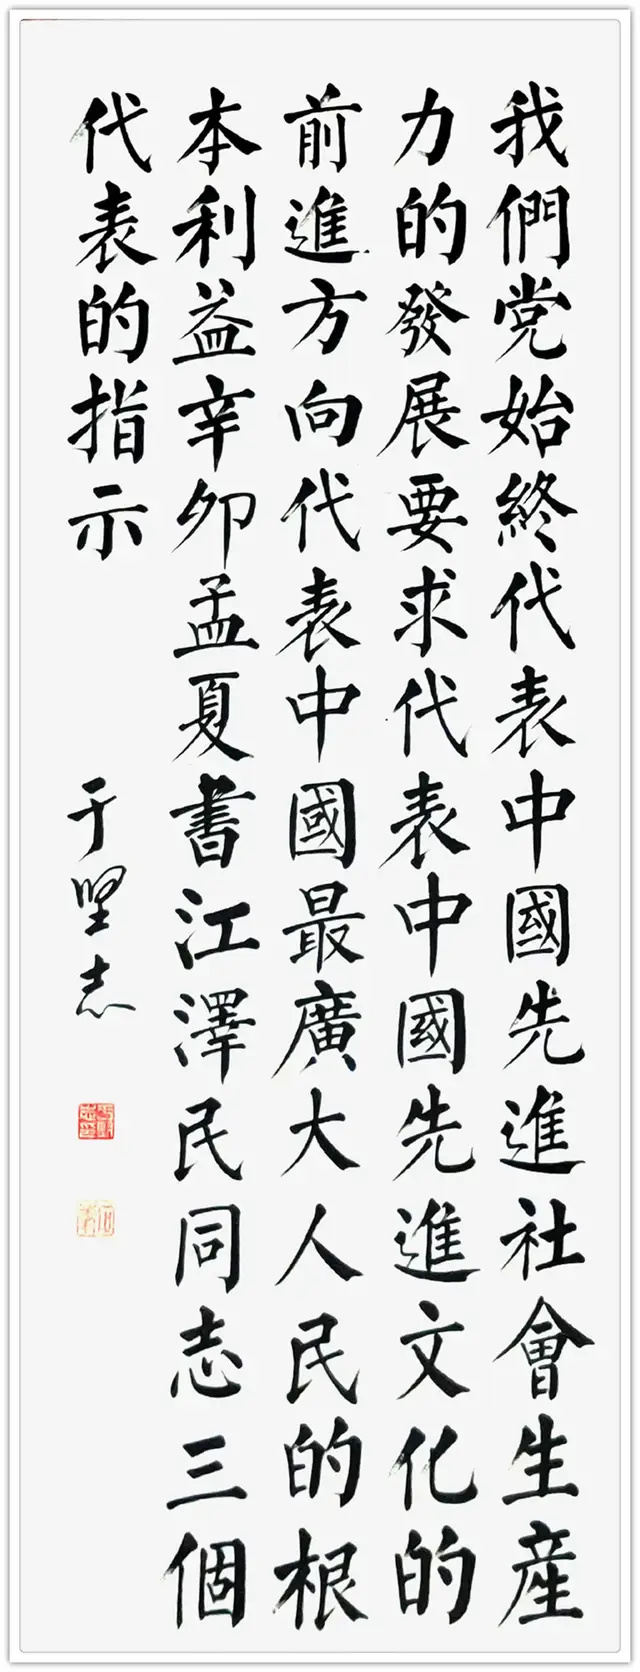 我們党始終代表中國先進社會生産
力的發展要求代表中國先進文化的
前進方向代表中國最廣大人民的根
本利益辛卯孟夏書江澤民同志三個
代表的指示
于坚志